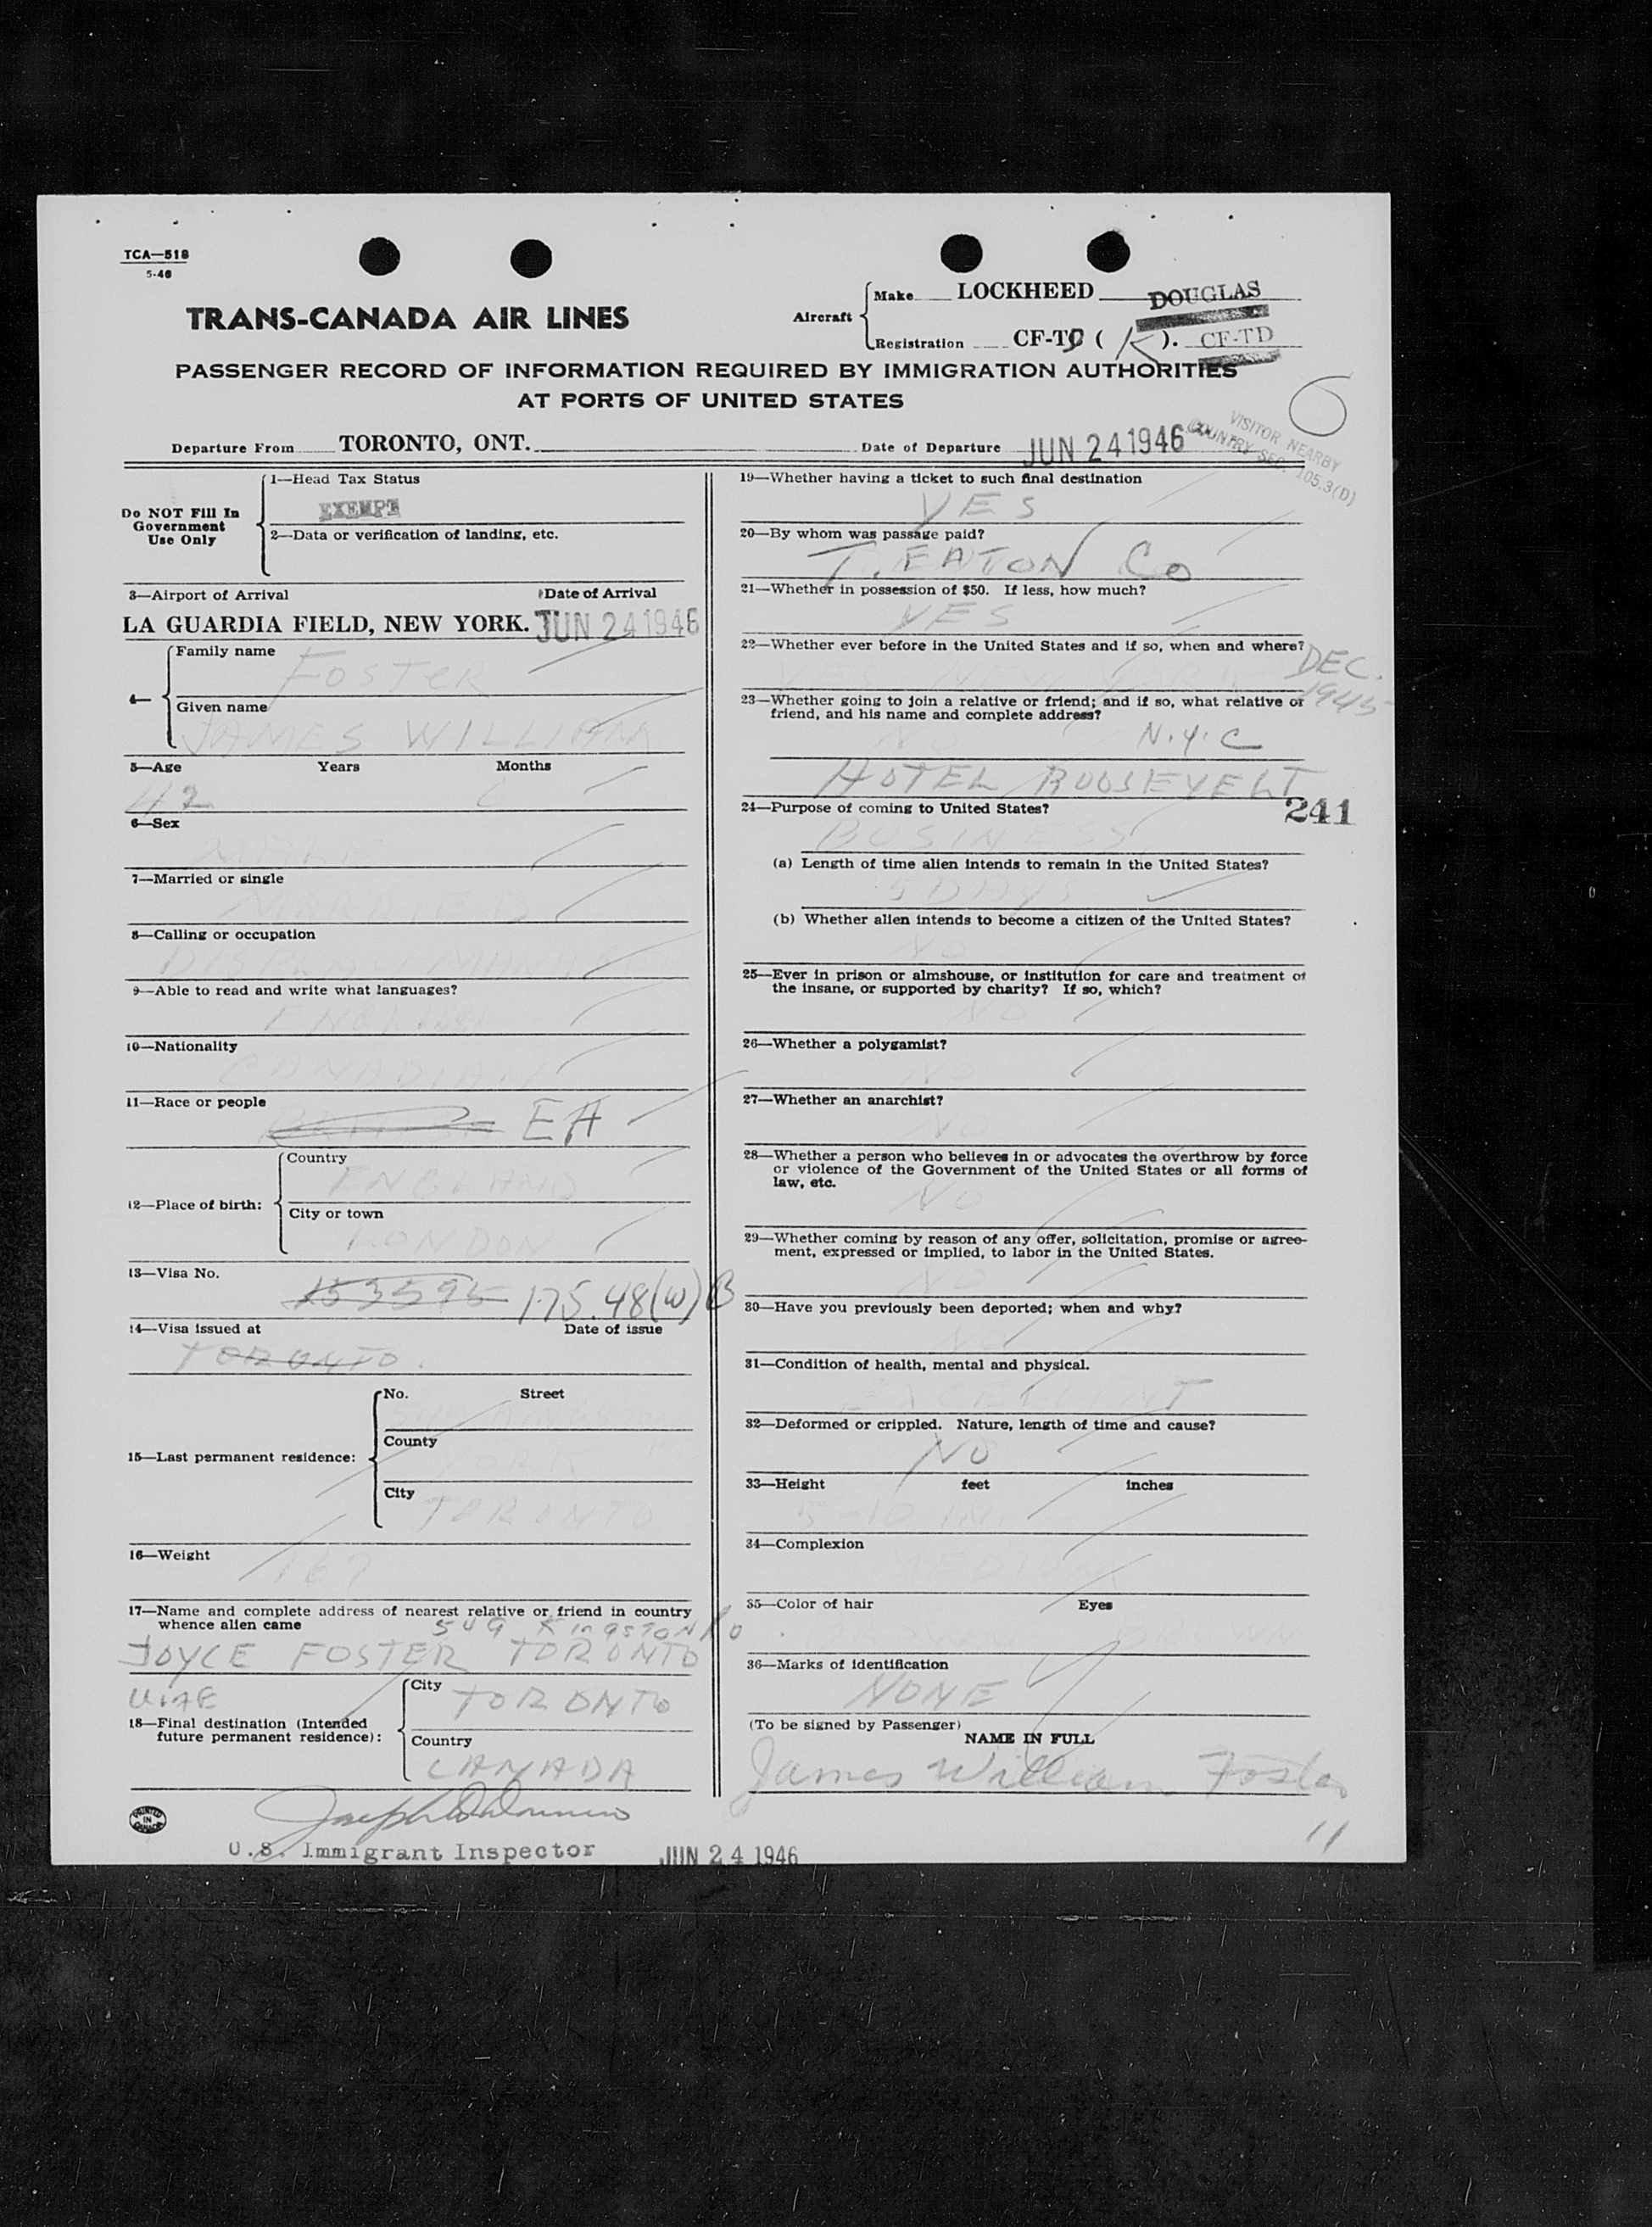 TCA—518
5-46
TRANS-CANADA AIR LINES
Aircraft
Make LOCKHEED DOUGLAS
Registration CF-TD ( K ). CF-TD
PASSENGER RECORD OF INFORMATION REQUIRED BY IMMIGRATION AUTHORITIES
AT PORTS OF UNITED STATES
6
VISITOR NEARBY
COUNTRY SEC. 105.3(D)
Departure From TORONTO, ONT. Date of Departure JUN 24 1946
Do NOT Fill In
Government
Use Only
1—Head Tax Status
EXEMPT
2—Data or verification of landing, etc.
3—Airport of Arrival Date of Arrival
LA GUARDIA FIELD, NEW YORK. JUN 24 1946
4—
Family name
FOSTER
Given name
JAMES WILLIAM
5—Age Years Months
42
6—Sex
MALE
7—Married or single
MARRIED
8—Calling or occupation
9—Able to read and write what languages?
ENGLISH
10—Nationality
CANADIAN
11—Race or people
EA
12—Place of birth:
Country
ENGLAND
City or town
LONDON
13—Visa No.
153595 175.48(W)B
14—Visa issued at Date of issue
TORONTO.
15—Last permanent residence:
No. Street
County
YORK
City
TORONTO
16—Weight
167
17—Name and complete address of nearest relative or friend in country
whence alien came
549 KINGSTON RD
JOYCE FOSTER TORONTO
WIFE
18—Final destination (Intended
future permanent residence):
City
TORONTO
Country
CANADA
U.S. Immigrant Inspector JUN 24 1946
19—Whether having a ticket to such final destination
YES
20—By whom was passage paid?
T. EATON Co
21—Whether in possession of $50. If less, how much?
YES
22—Whether ever before in the United States and if so, when and where?
YES NEW YORK DEC. 1945
23—Whether going to join a relative or friend; and if so, what relative or
friend, and his name and complete address?
NO N.Y.C
HOTEL ROOSEVELT
241
24—Purpose of coming to United States?
BUSINESS
(a) Length of time alien intends to remain in the United States?
5 DAYS
(b) Whether alien intends to become a citizen of the United States?
NO
25—Ever in prison or almshouse, or institution for care and treatment of
the insane, or supported by charity? If so, which?
NO
26—Whether a polygamist?
NO
27—Whether an anarchist?
NO
28—Whether a person who believes in or advocates the overthrow by force
or violence of the Government of the United States or all forms of
law, etc.
NO
29—Whether coming by reason of any offer, solicitation, promise or agree-
ment, expressed or implied, to labor in the United States.
NO
30—Have you previously been deported; when and why?
NO
31—Condition of health, mental and physical.
EXCELLENT
32—Deformed or crippled. Nature, length of time and cause?
NO
33—Height feet inches
5-10 IN.
34—Complexion
MEDIUM
35—Color of hair Eyes
BROWN
36—Marks of identification
NONE
(To be signed by Passenger)
NAME IN FULL
James William Foster
11
PRINTED
IN
CANADA